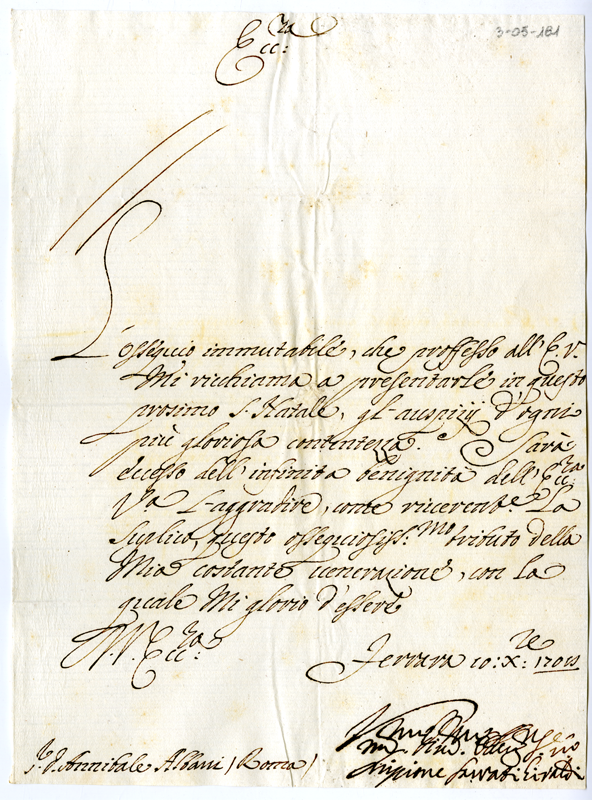 Ecc:za
3-05-181
L'ossequio immutabile, che proffesso all' E. V.
Mi richiama a presentarle in questo
prosimo S. Natale, gl' auspiij d'ogni
più gloriosa contentezza. Sarà
eccesso dell' infinita benignità dell' Ecc:za
Va L'aggradire, come riverente. La
suplico, questo ossequiosiss:mo tributo della
Mia costante venerazione, con la
quale Mi glorio d'essere
D. V. Ecc:za
Ferrara 10: Xre:
Sr. D. Annibale Albani (Roma)
Scipione